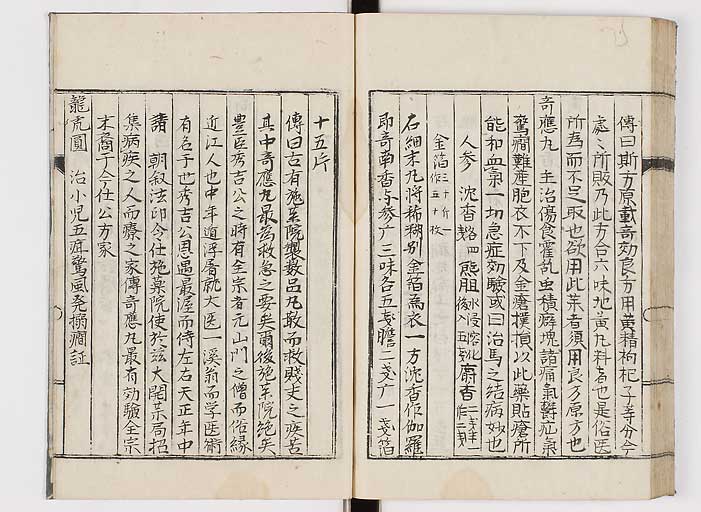 傳曰斯方原載奇効良方用黄精枸杞子等分今
處々所販乃此方合六味地黄丸料者也是俗医
所為而不足取也欲用此薬者須用良方原方也
奇應丸 主治傷食霍乱虫積癖塊諸痛氣欝疝氣
驚癇難産胞衣不下及金瘡撲損以此藥貼瘡所
能和血氣一切急症効驗或曰治馬之結病妙也
人参 沈香各四 熊胆 水浸溶化後入 五戔 麝香
金箔 三十一作五十枚
右細末丸將稀糊别金箔為衣一方沈香作伽羅
即奇南香亦参广三味各五戔膽二戔广一戔箔
十五片
傳曰古有施薬院製数品丸散而救賤丈之疾苦
其中奇應丸最為救急之要矣爾後施薬院絶矣
豊臣秀吉公之時有全宗者元山門之僧而俗縁
近江人也中年還浮屠就大医一溪翁而学医術
有名于世秀吉公恩遇最渥而侍左右天正年中
諸 朝叙法印今仕施薬院使於兹大開薬局招
集病疾之人而療之家傳奇應丸最有効驗全宗
末裔于今仕公方家
龍虎圓 治小児五疳驚風発搐癇証